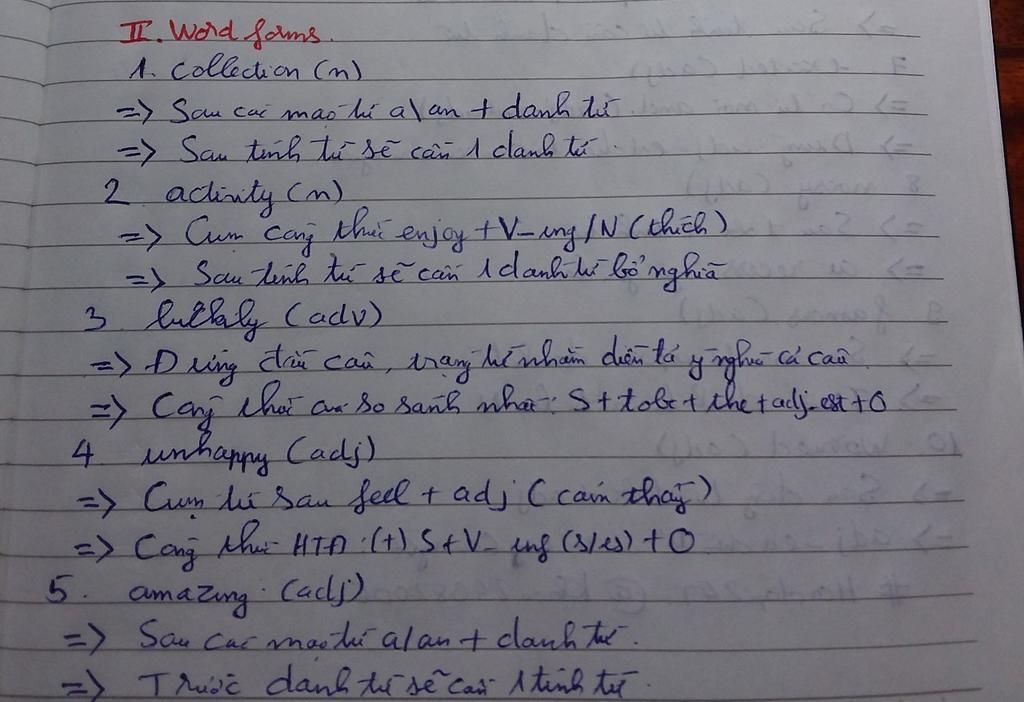 II. Word forms.
1. Collection (n)
=> Sau các mạo từ a/an + danh từ
=> Sau tính từ sẽ cần 1 danh từ.
2 activity (n)
=> Cụm công thức enjoy + V-ing/N (thích)
=> Sau tính từ sẽ cần 1 danh từ bổ nghĩa
3 luckily (adv)
=> Đứng đầu câu, trạng từ nhằm diễn tả ý nghĩa cả câu
=> Công thức của so sánh nhất: S + tobe + the + adj-est + O
4 unhappy (adj)
=> Cụm từ sau feel + adj (cảm thấy)
=> Công thức HTĐ: (+) S + V-ing (s/es) + O
5. amazing. (adj)
=> Sau các mạo từ a/an + danh từ.
=> Trước danh từ sẽ cần 1 tính từ.